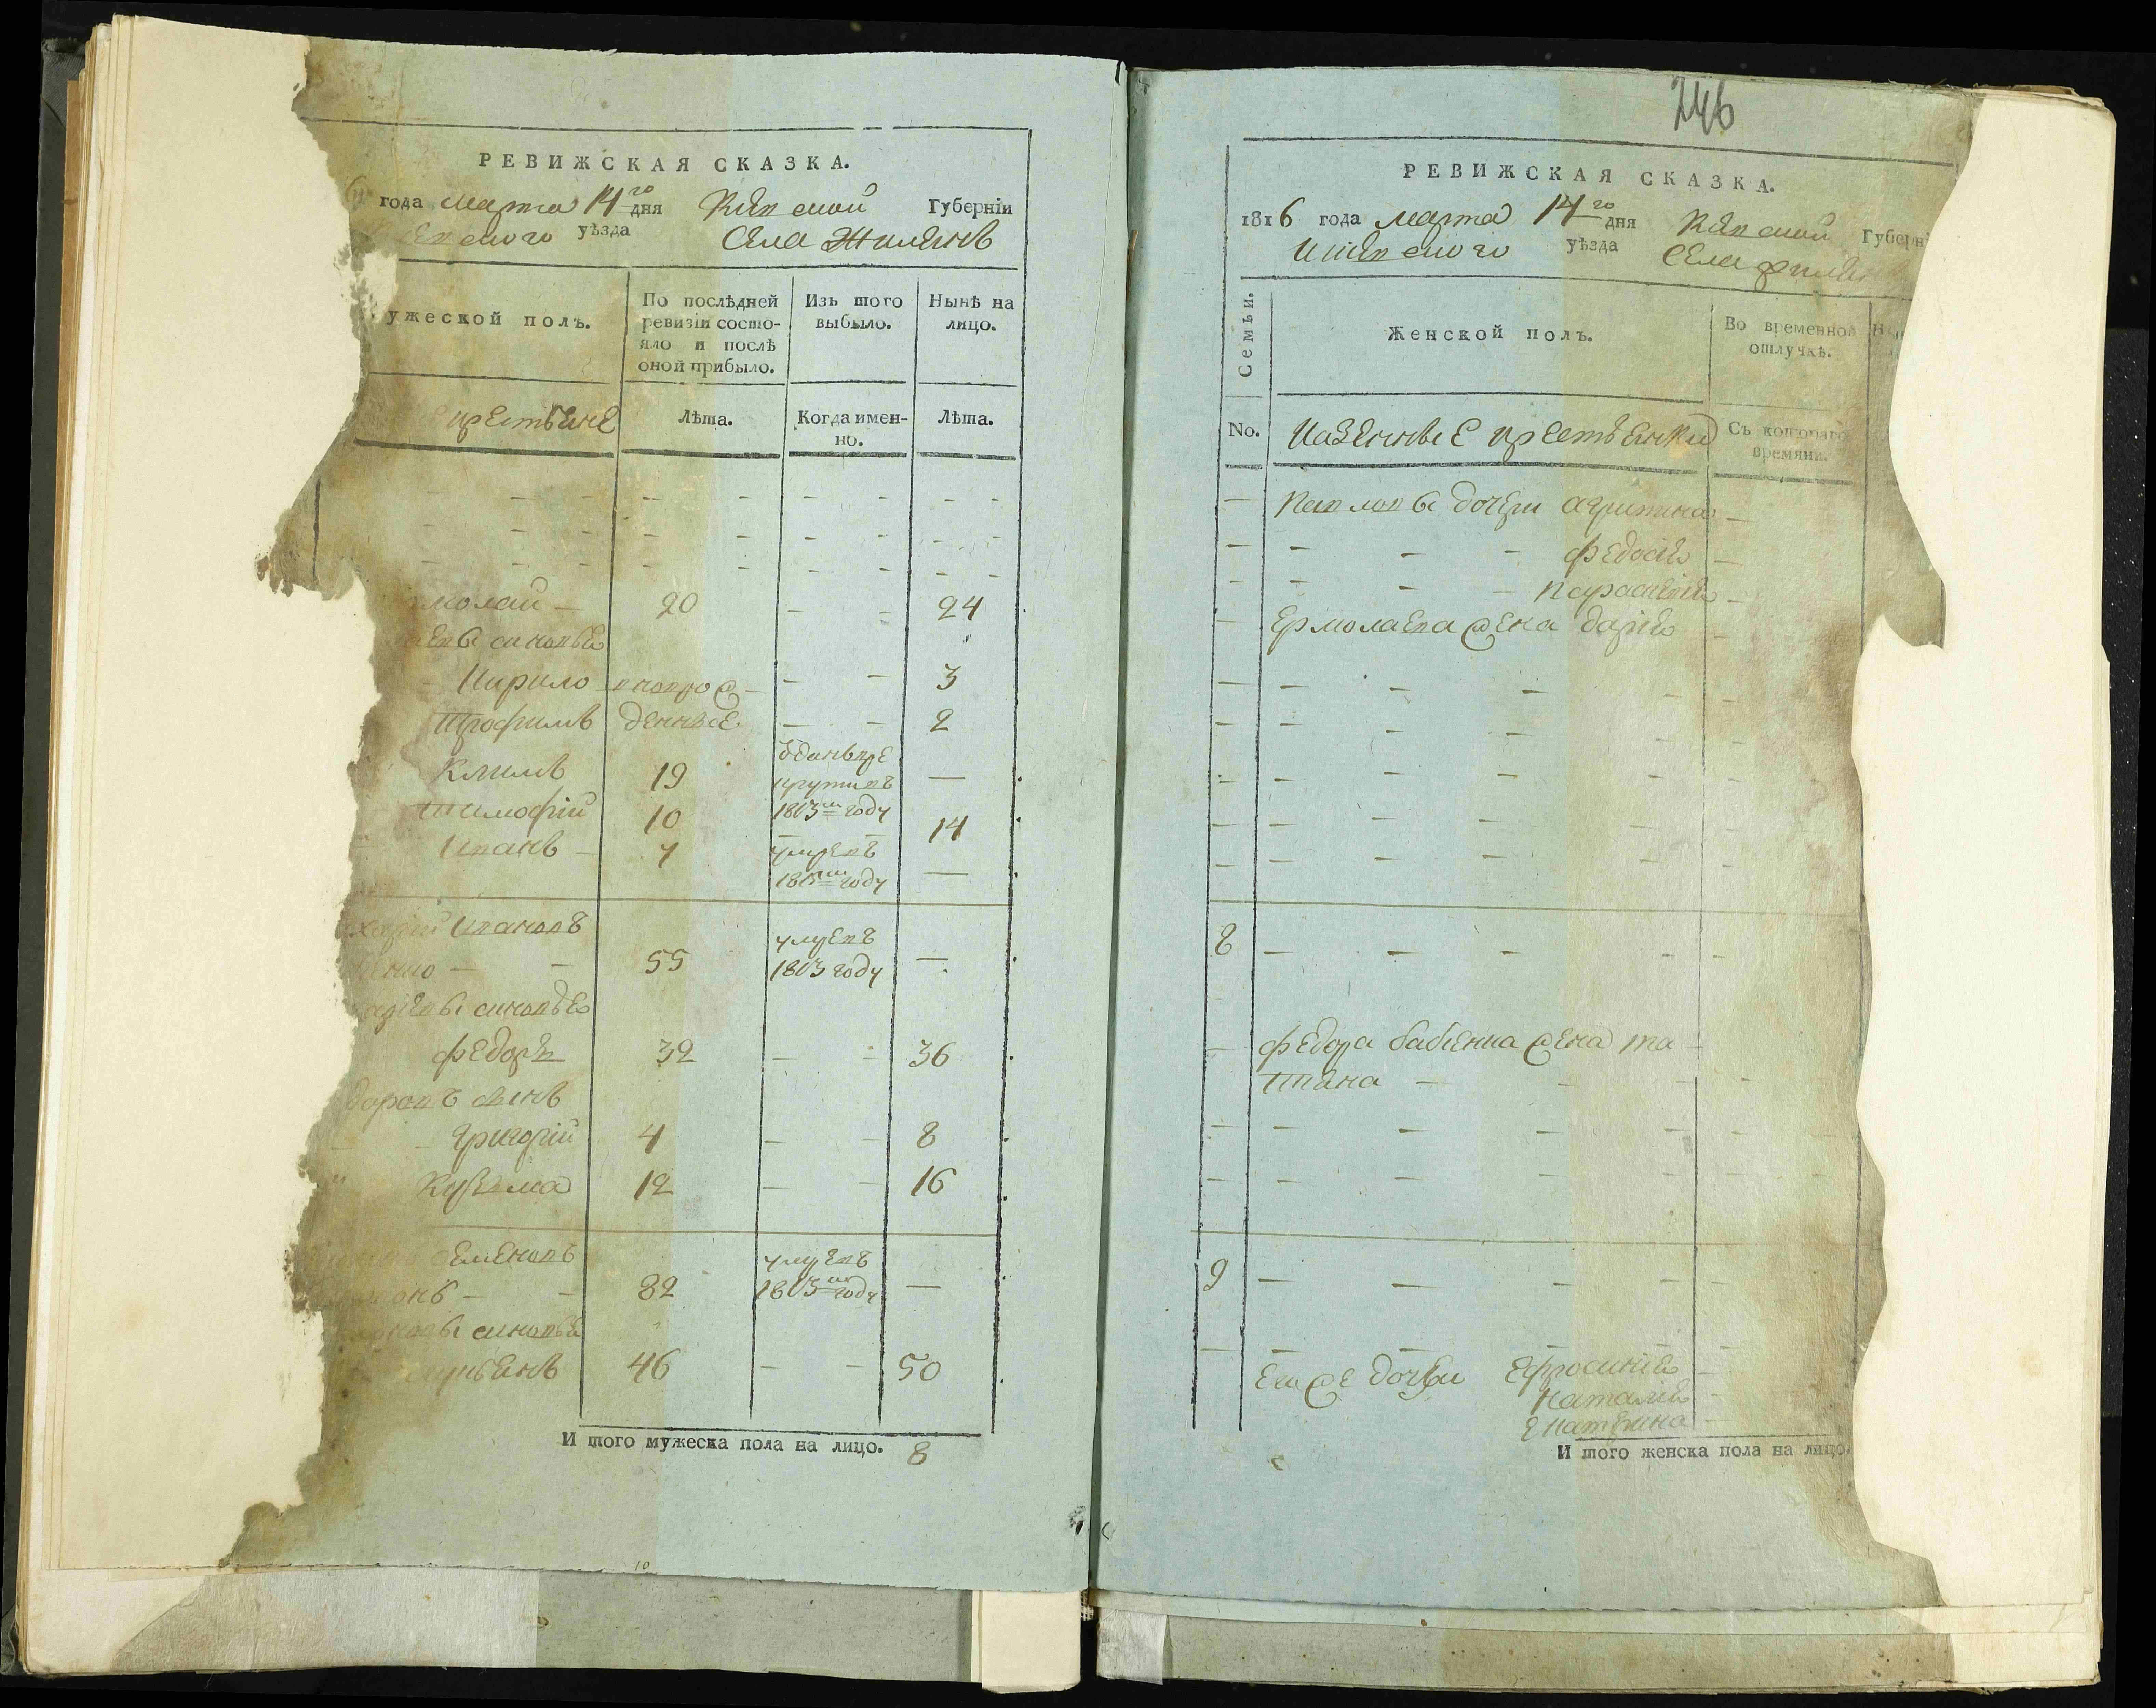 246
РЕВИЖСКАЯ СКАЗКА.
года марта 14го дня Кіевской Губерніи
уѣзда Села Жиленъ
ужеской полъ.
По послѣдней ревизіи состояло и послѣ оной прибыло.
Изъ того выбыло.
Нынѣ на лицо.
крестьяне
Лѣта.
Когда именно.
Лѣта.
молай 20 24
евы синовья
Кирило новорож 3
Трофимъ денные 2
Климъ 19 отданъ в рекруты въ 1813м году
Тимофій 10 14
Иванъ 7 умре въ 1815м году
харій Ивановъ
енко 55 умре въ 1813 году
аріевы синовья
Федоръ 32 36
доровъ синъ
Григорій 4 8
Кузьма 12 16
Семеновъ
82 умре въ 1813м году
новы синовья
46 50
И того мужеска пола на лицо. 8
РЕВИЖСКАЯ СКАЗКА.
1816 года марта 14го дня Кіевской Губерн
Кіевского уѣзда Села
Семьи.
Женской полъ.
Во временной отлучкѣ.
No.
Казенные крестьянки
Съ котораго времяни.
Павловы дочери Агрипина
Федосія
Параскевія
Ермолаева жена Дарія
8
Федора Бабіенка жена Та
тіана
9
Его же дочери Ефросинія
Наталія
Екатерина
И того женска пола на лицо.